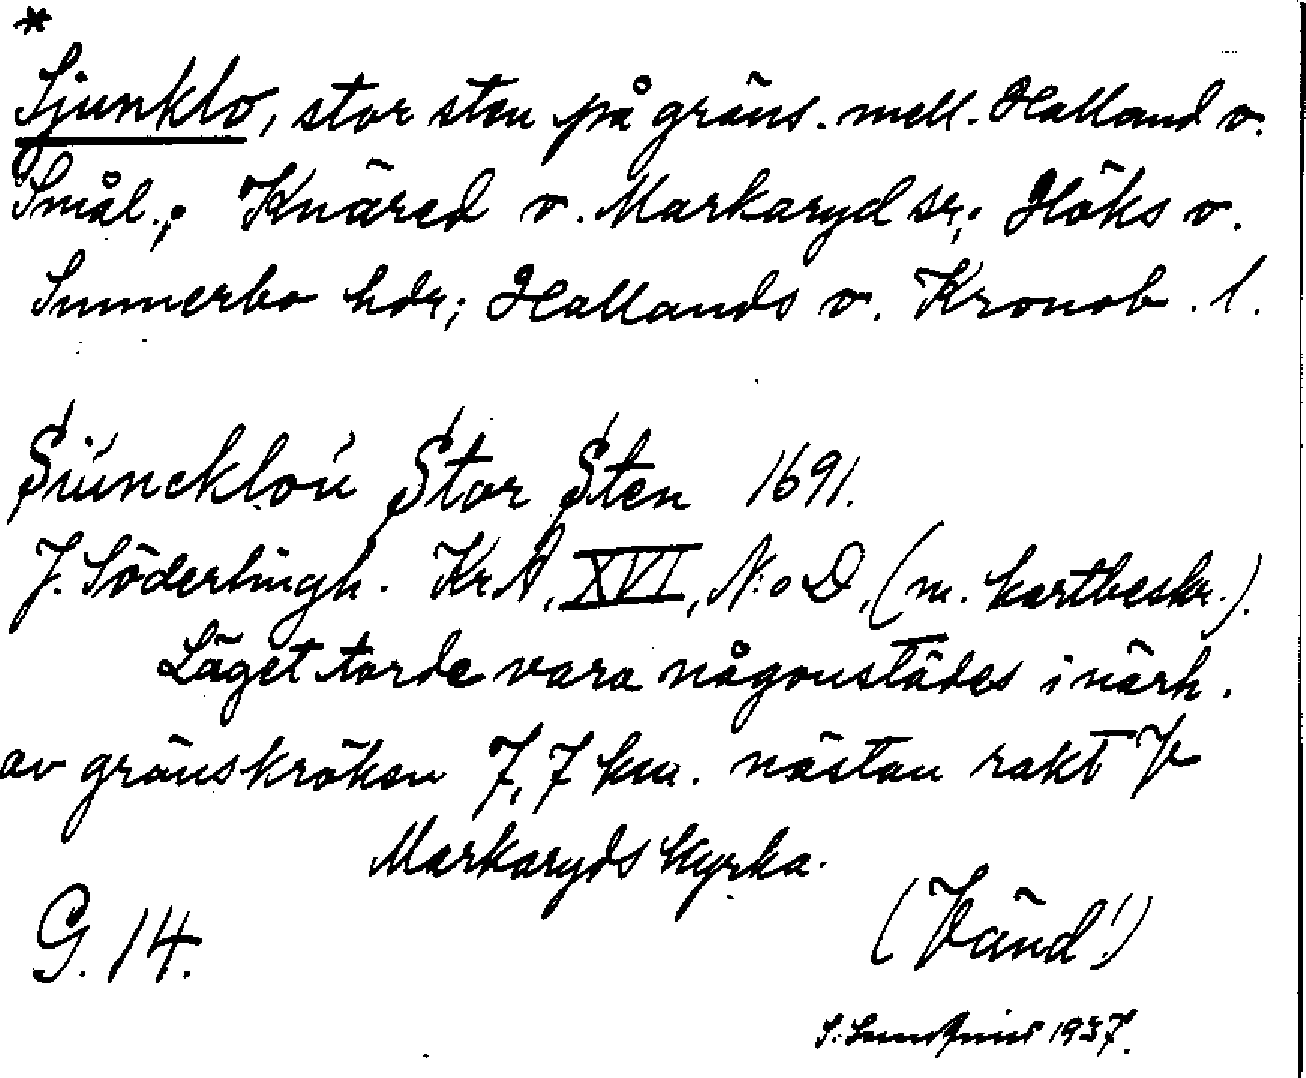 *
Sjunklo, stor sten på gräns. mell. Halland o.
Smål.; Knäred o. Markaryd sr; Höks o.
Sunnerbo hdr; Hallands o. Kronob. l.
Siúnckloú Stor Sten 1691.
J. Söderlingh. Kr.A, XVI, N:o D, (m. kartbeskr.).
Läget torde vara någonstädes i närh.
av gränskröken 7,7 km. nästan rakt V
Markaryds kyrka.
G. 14.
(Vänd!)
S. Lundqvist 1937.